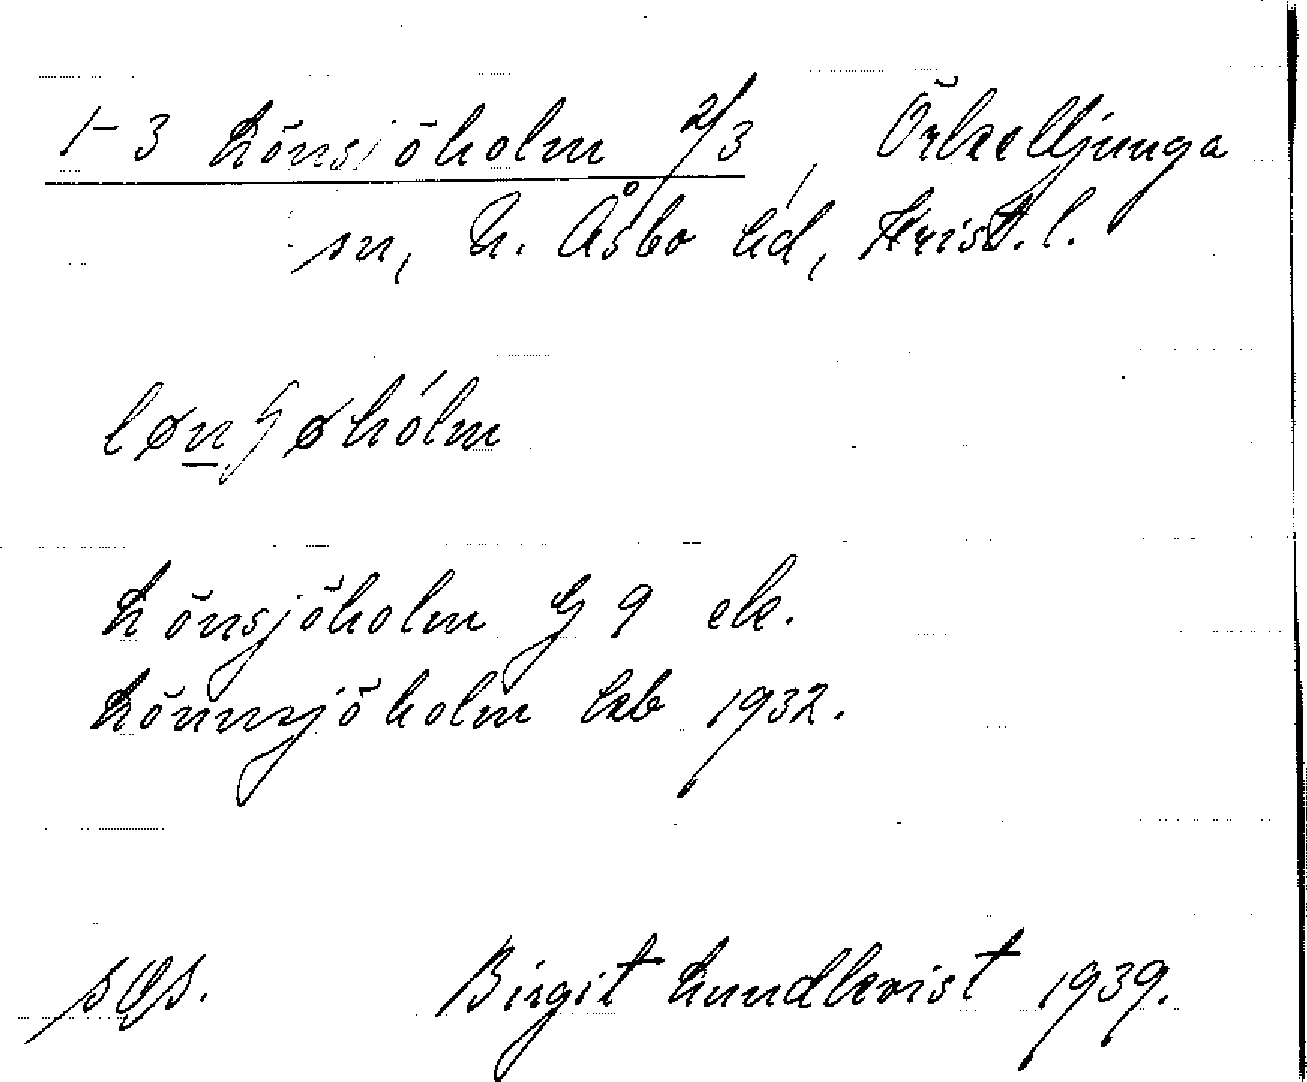 1-3 Lönsjöholm 2/3, Örkelljunga
sn, N. Åsbo hd, Krist. l.
lønʃøhólm
Lönsjöholm G 9 ek.
Lönnsjöholm kb 1932.
Birgit Lundkvist 1939.